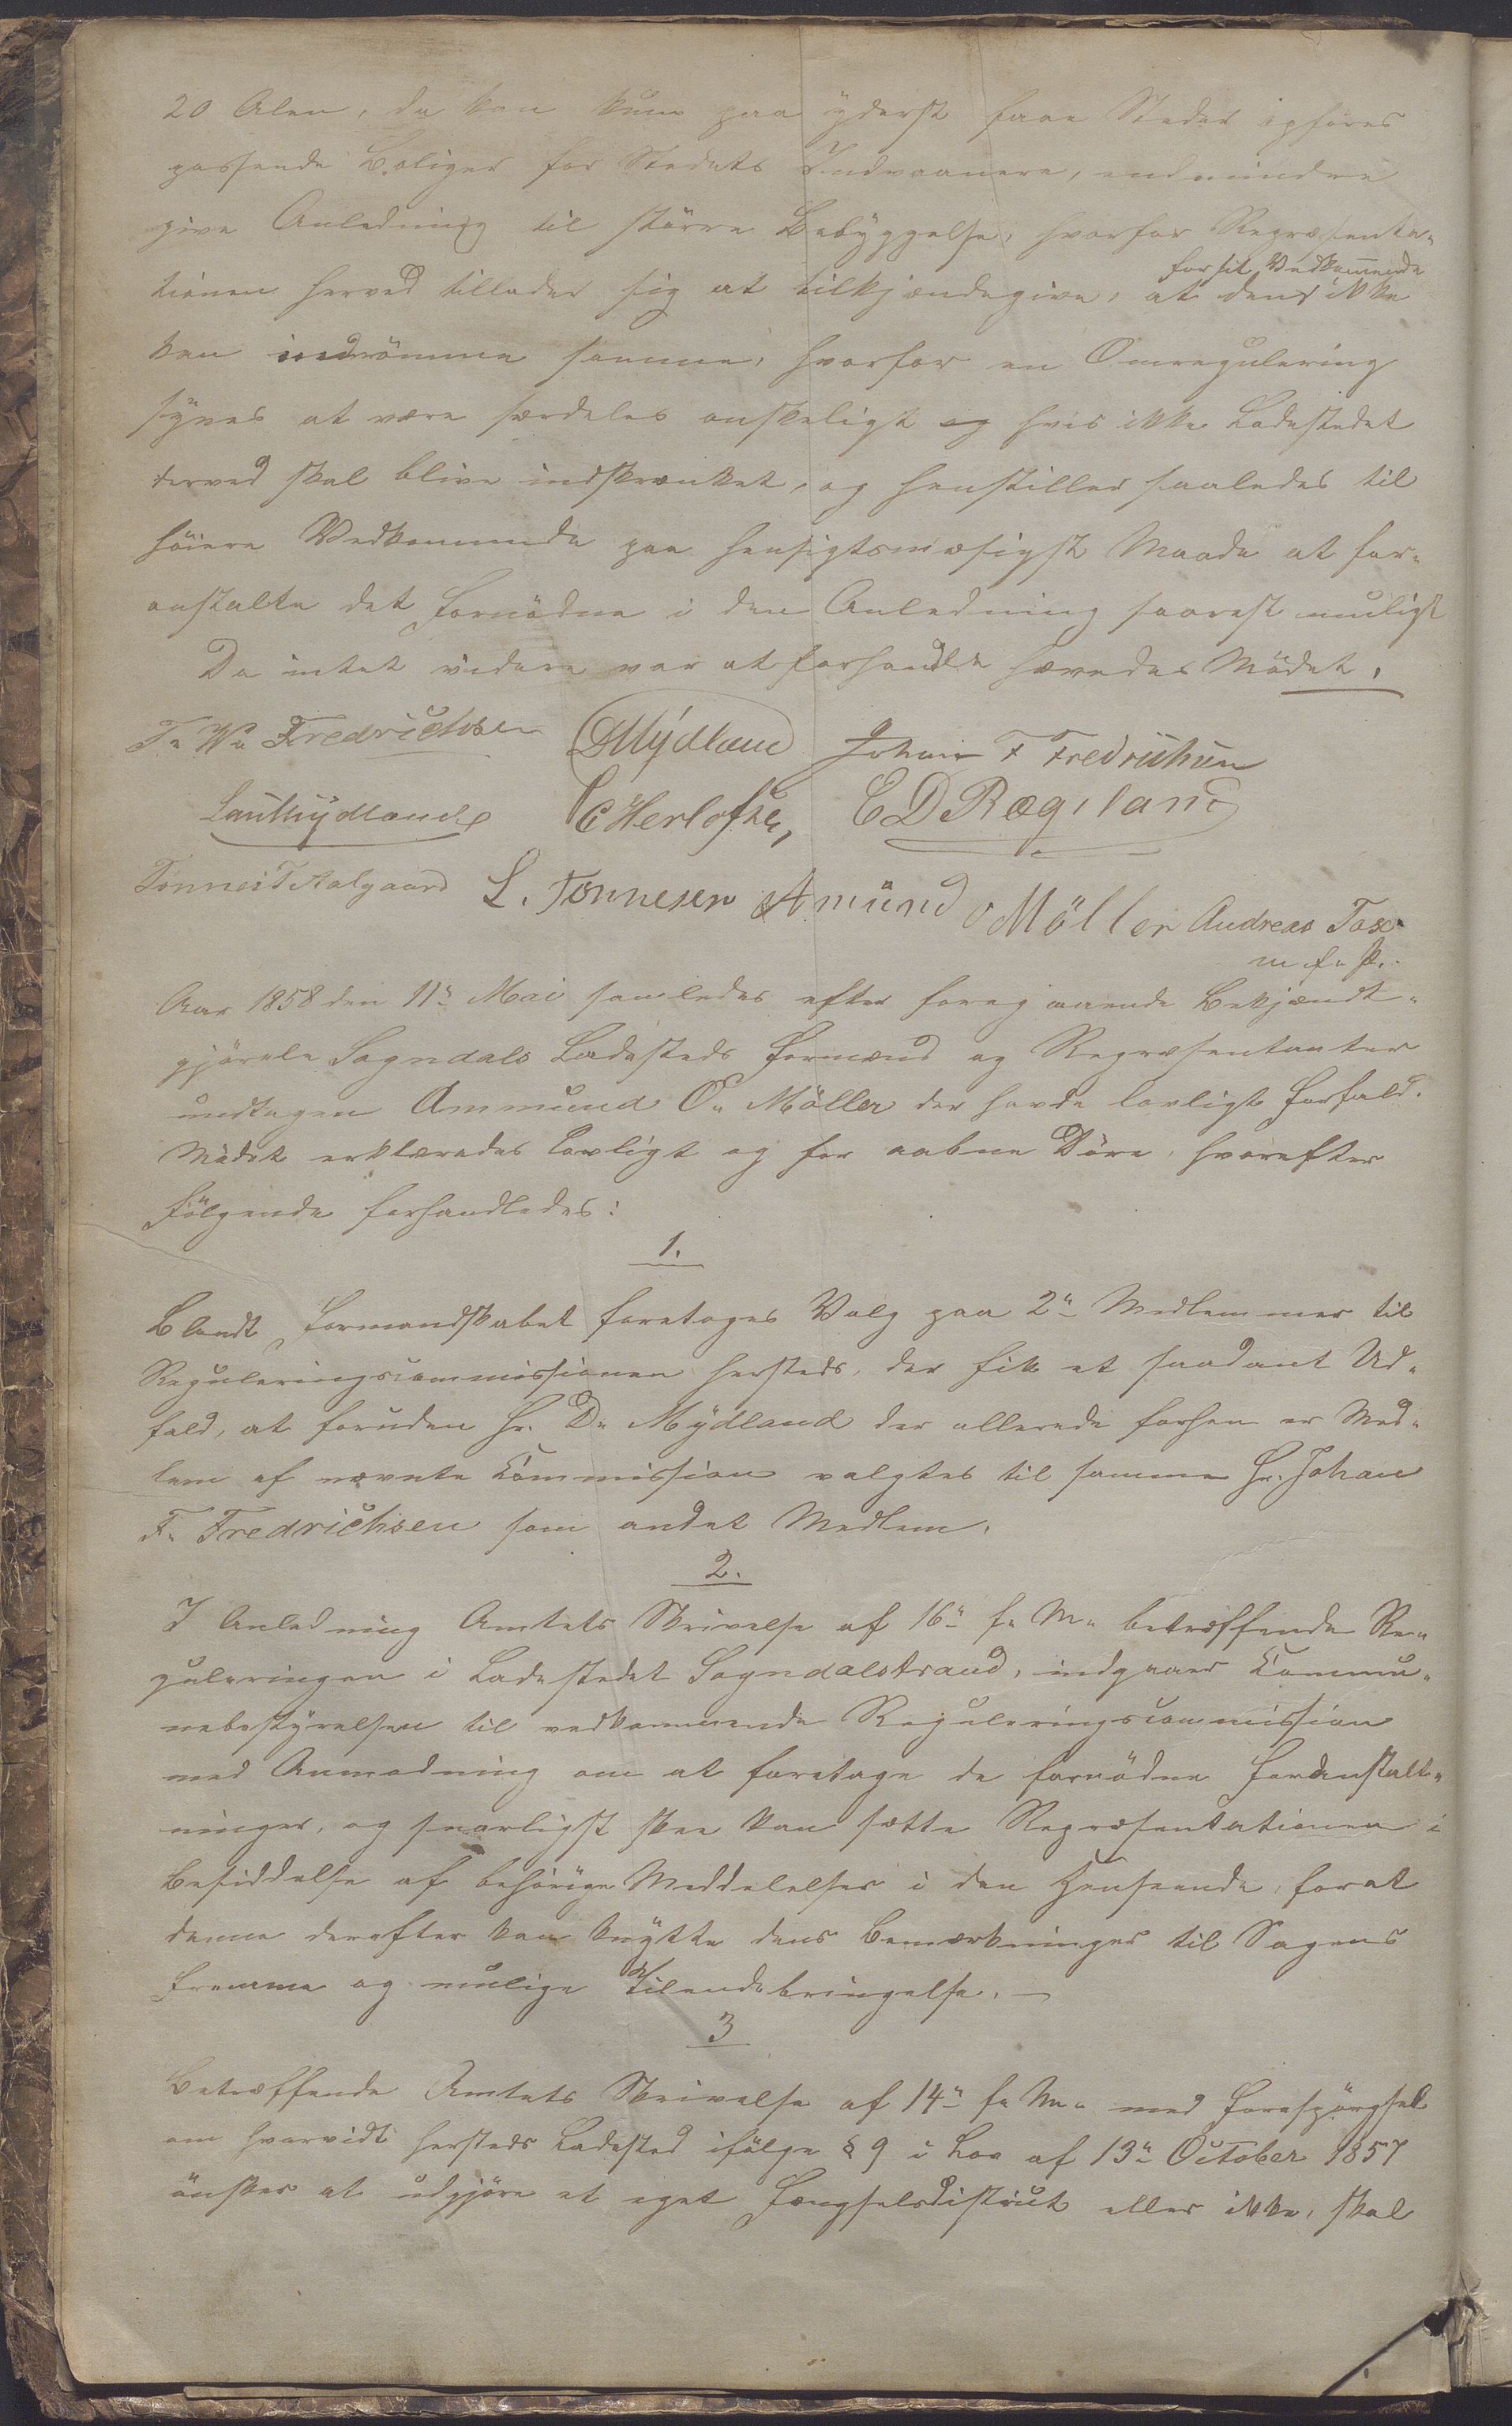 20 Alen, da kan kun paa yderst faae Steder opföres
passende Boliger for Stedets Indvaanere, endmindre
give Anledning til större Bebyggelse, hvorfor Repræsenta-
tionen herved tillader sig at tilkjændegive, at den for sit Vedkommende ikke
kan indrömme samme, hvorfor en Omregulering
synes at være særdeles önskeligt og hvis ikke Ladestedet
derved skal blive indskrænket, og henstiller saaledes til
höiere Vedkommende paa hensigtsmæsigst Maade at for-
anstalte det fornödne i den Anledning snarest muligt
Da intet videre var at forhandle hævedes Mödet.
T. W. Fredrichsen D Mydland Johan F Fredrichsen
Mydland C Herlofsen E D Rægeland
Tönnes T Aalgaard L. Tönnesen Amund O Möller Andreas Tox
m. f. P.
Aar 1858 den 11te Mai samledes efter foregaaende Bekjendt-
gjörelse Sogndals Ladesteds Formænd og Repræsentanter
undtagen Ammund O. Möller der havde lovligt Forfald.
Mödet erklæredes lovligt og for aabne Döre, hvorefter
Fölgende forhandledes:
1.
Blandt Formandskabet foretoges Valg paa 2de Medlemmer til
Reguleringscommissionen hersteds, der fik et saadant Ud-
fald, at foruden Hr. D. Mydland der allerede forhen er Med-
lem af nævnte Commission valgtes til samme Hr. Johan
F. Fredrichsen som andet Medlem.
2.
I Anledning Amtets Skrivelse af 16de f. M. betræffende Re-
guleringen i Ladestedet Sogndalstrand, indgaaer Commu-
nebestyrelsen til vedkommende Reguleringscommission
med Anmodning om at foretage de fornödne Foranstalt-
ninger, og snarligst skee kan sætte Repræsentationen i
Besiddelse af behörige Meddelelser i den Henseende, forat
denne derefter kan knytte dens Bemærkninger til Sagens
Fremme og mulige Tilendebringelse. —
3
Betræffende Amtets Skrivelse af 14de f. M. med Forespörgsel
om hvorvidt hersteds Ladested ifölge § 9 i Lov af 13de October 1857
önsker at udgjöre et eget Fængselsdistrict eller ikke, skal